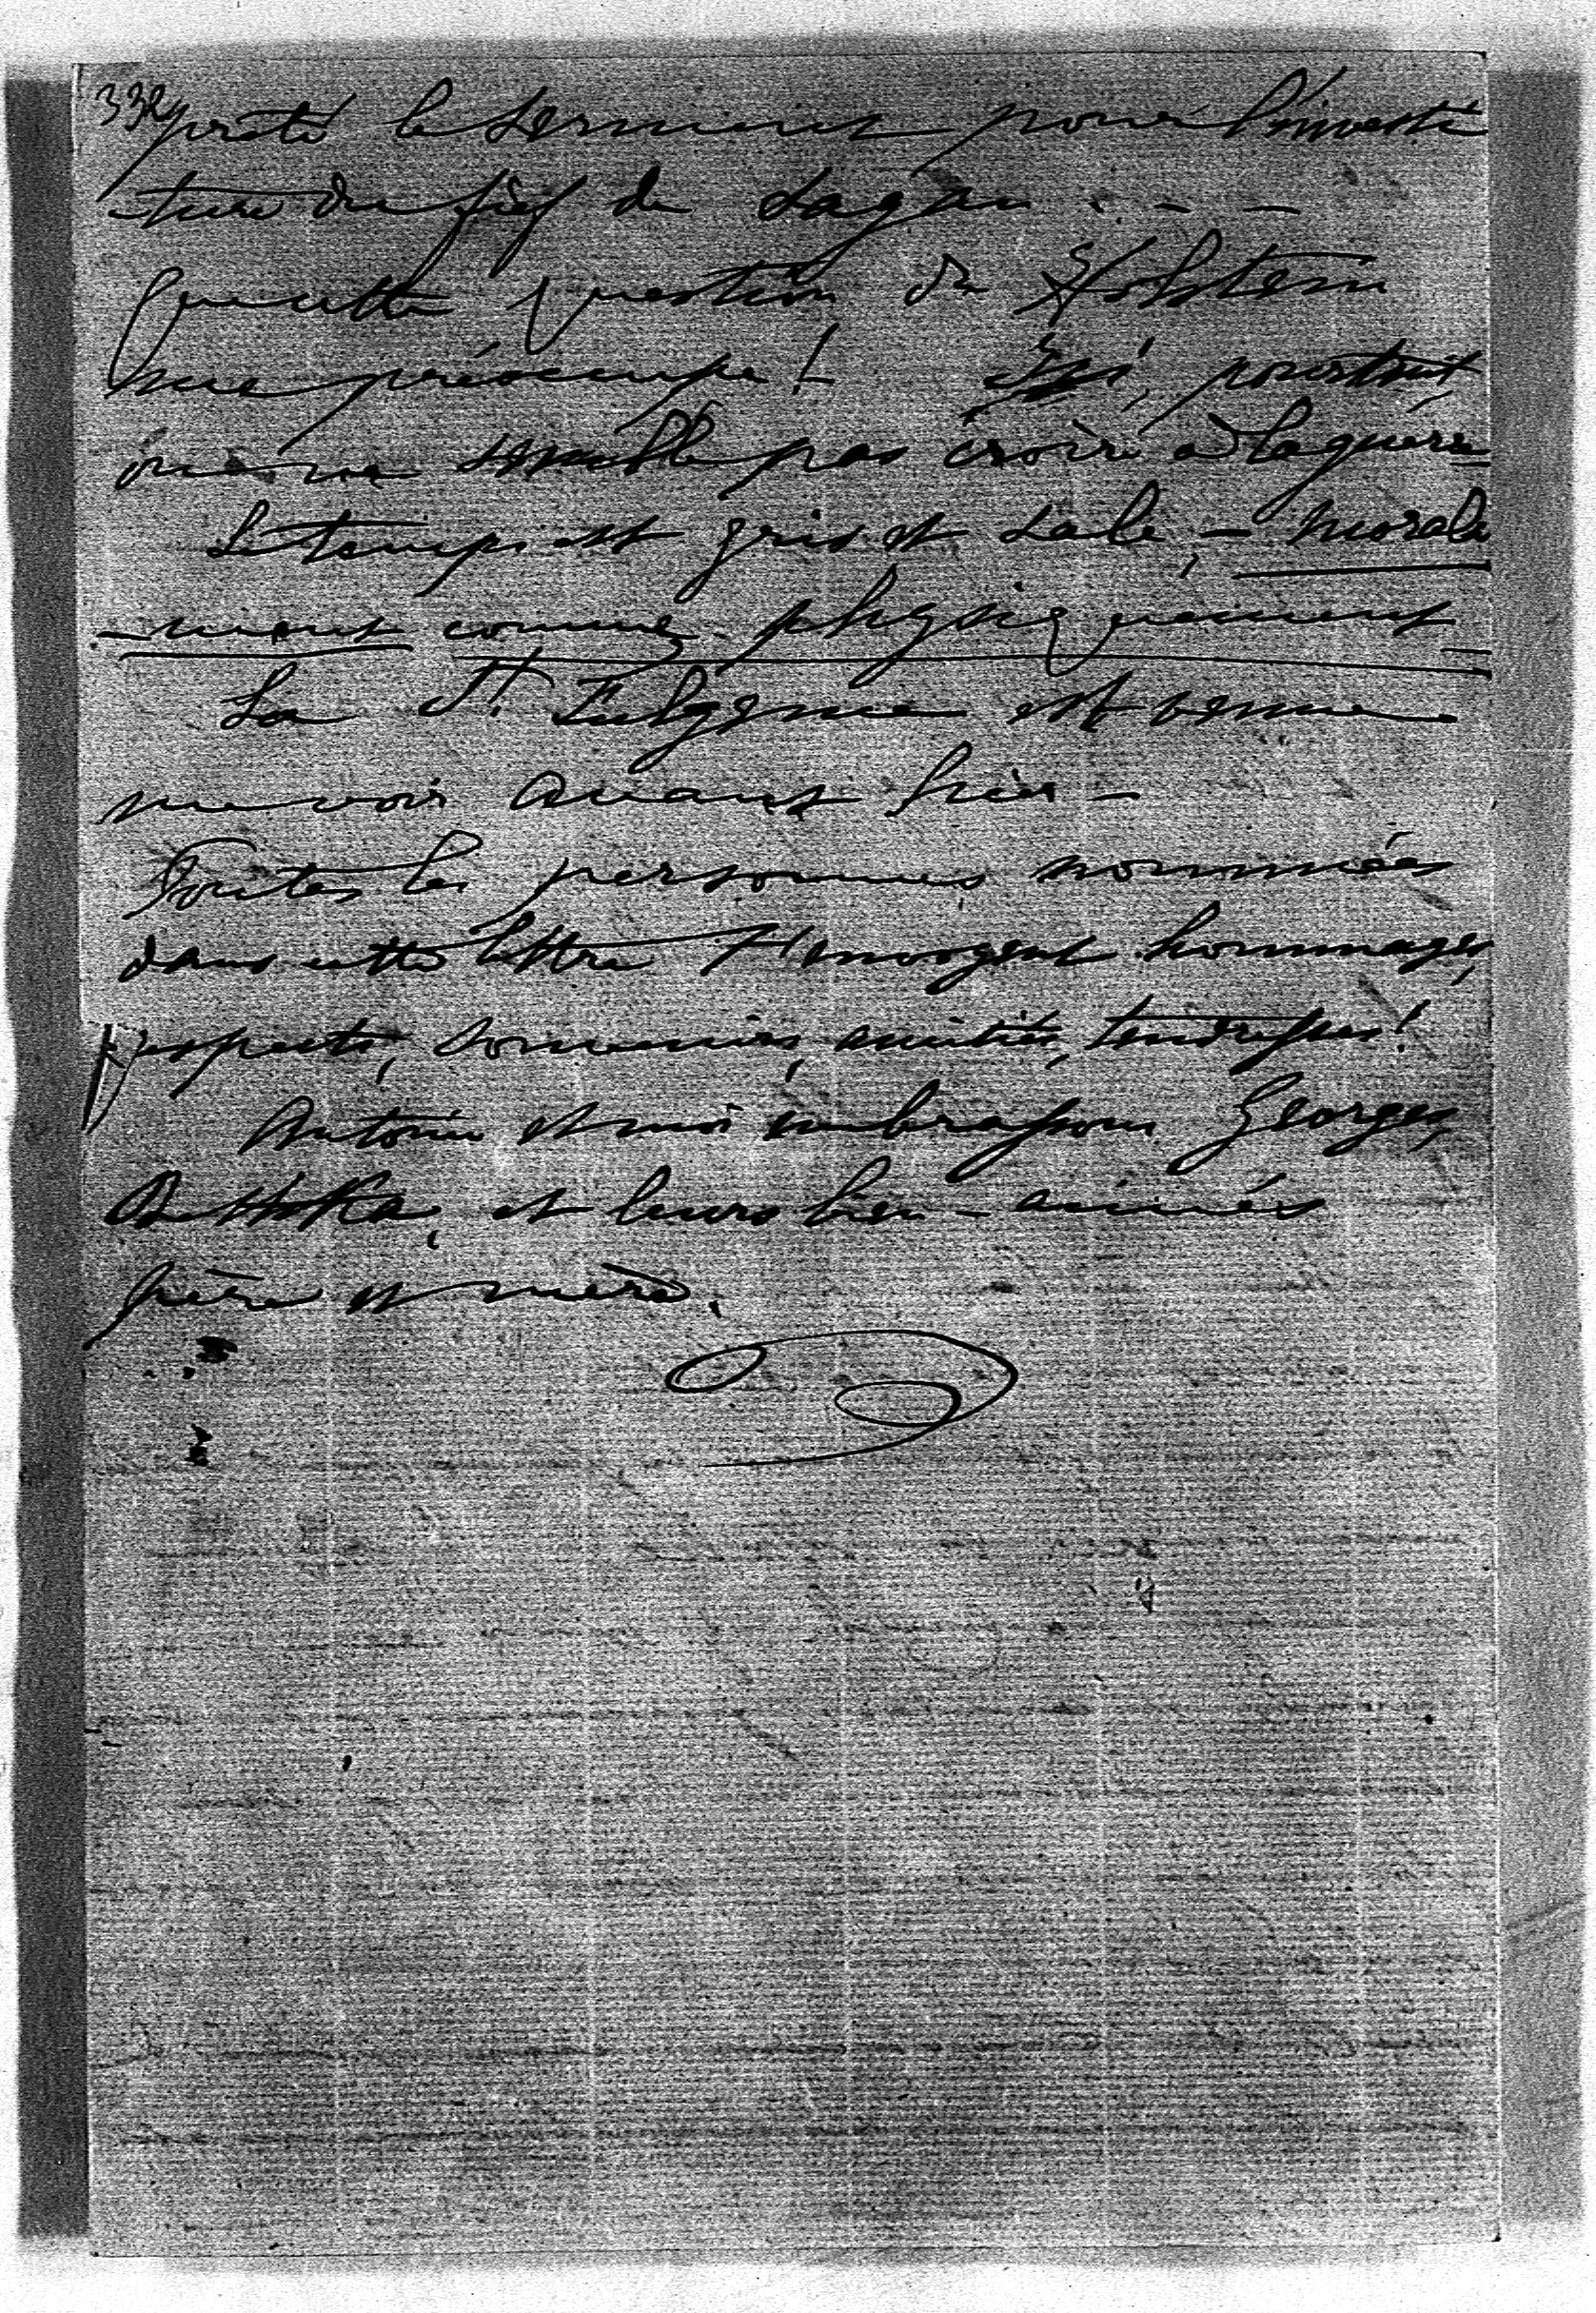 332
prêté le serment pour l'investi
-ture du fief de Sagan . - -
Que cette question du Holstein
me préoccupe! Ici, pourtant,
on ne semble pas croire à la guerre
Le temps est gris et sale, - morale
-ment comme physiquement
La St. Fulgence est venue
me voir avant hier -
Toutes les personnes nommées
dans cette lettre t'envoyent hommages,
respects, souvenirs, amitiés, tendresses!
Antoine et moi embrassons Georges,
et leurs bien-aimés
père et mère.